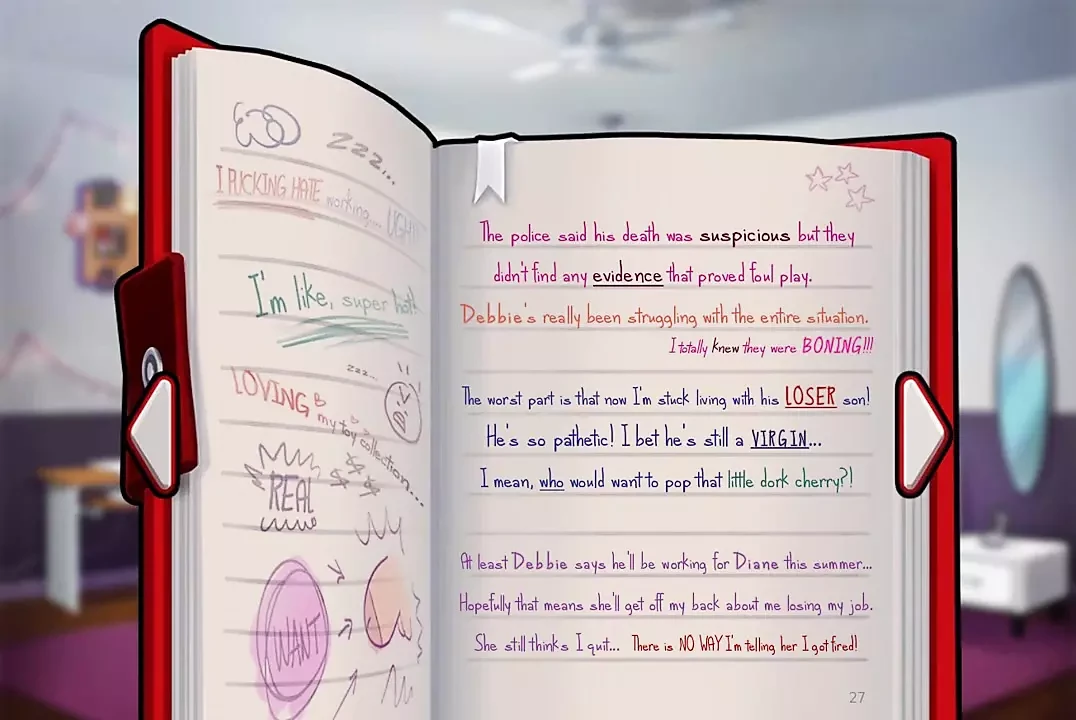 zzz...
I FUCKING HATE working... UGH!
I'm like, super hot!
zzz...
LOVING my toy collection...
REAL
WANT
The police said his death was suspicious but they
didn't find any evidence that proved foul play.
Debbie's really been struggling with the entire situation.
I totally knew they were BONING!!!
The worst part is that now I'm stuck living with his LOSER son!
He's so pathetic! I bet he's still a VIRGIN...
I mean, who would want to pop that little dork cherry?!
At least Debbie says he'll be working for Diane this summer...
Hopefully that means she'll get off my back about me losing my job.
She still thinks I quit... There is NO WAY I'm telling her I got fired!
27